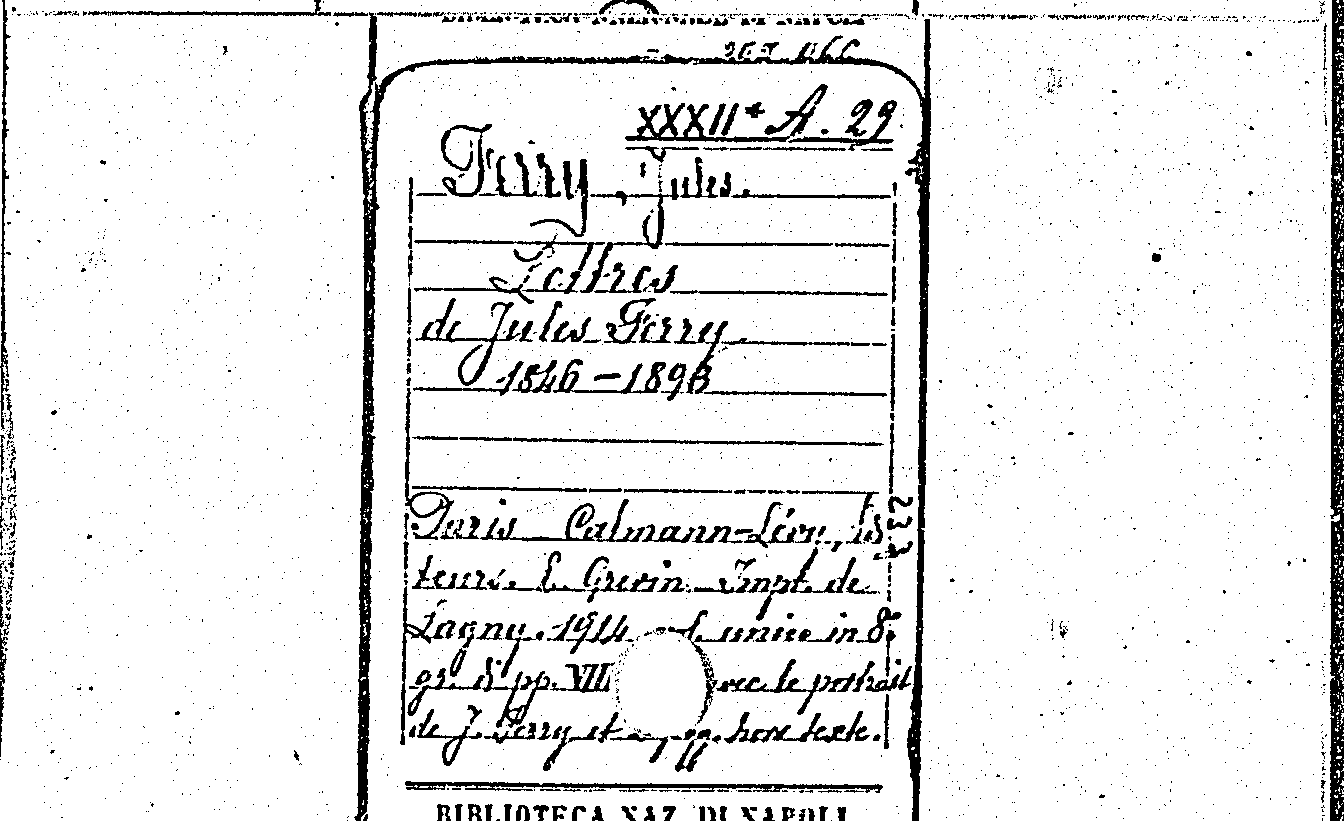 XXXII* A. 29
Ferry, Jules.
Lettres
de Jules Ferry.
1846 - 1893
Paris Calmann-Lévy,
teurs. E. Grevin Impr. de
Lagny. 1914 in 8°
gr. di pp. VIII avec le portrait
de J. Ferry et hors texte.
BIBLIOTECA NAZ. DI NAPOLI